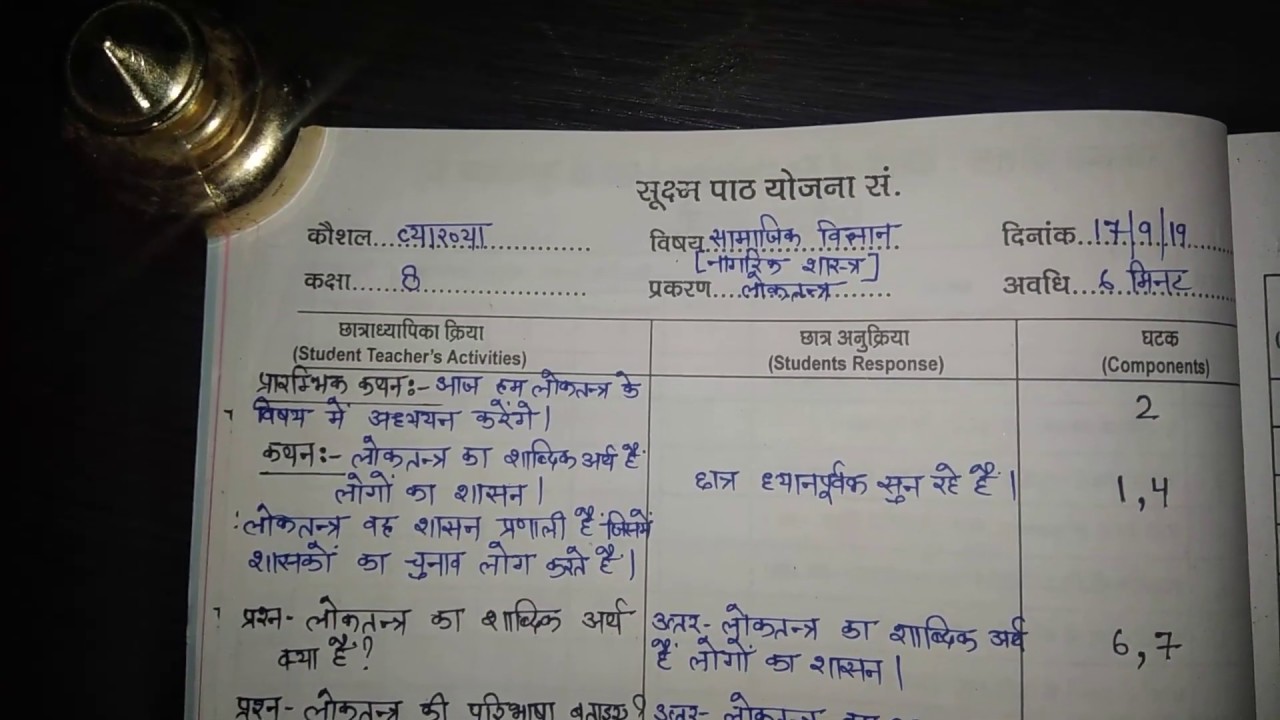 सूक्ष्म पाठ योजना सं.
कौशल...व्याख्या
विषय सामाजिक विज्ञान
[नागरिक शास्त्र]
दिनांक..17/9/19
कक्षा.....8
प्रकरण....लोकतन्त्र
अवधि...6 मिनट
छात्राध्यापिका क्रिया
(Student Teacher's Activities)
छात्र अनुक्रिया
(Students Response)
घटक
(Components)
प्रारम्भिक कथन:- आज हम लोकतन्त्र के
विषय में अध्ययन करेंगे।
2
कथन:- लोकतन्त्र का शाब्दिक अर्थ है
लोगों का शासन।
छात्र ध्यानपूर्वक सुन रहे हैं।
1,4
लोकतन्त्र वह शासन प्रणाली है जिसमें
शासकों का चुनाव लोग करते हैं।
प्रश्न- लोकतन्त्र का शाब्दिक अर्थ
क्या है?
उत्तर- लोकतन्त्र का शाब्दिक अर्थ
है लोगों का शासन।
6,7
प्रश्न- लोकतन्त्र की परिभाषा बताइए?
उत्तर- लोकतन्त्र वह